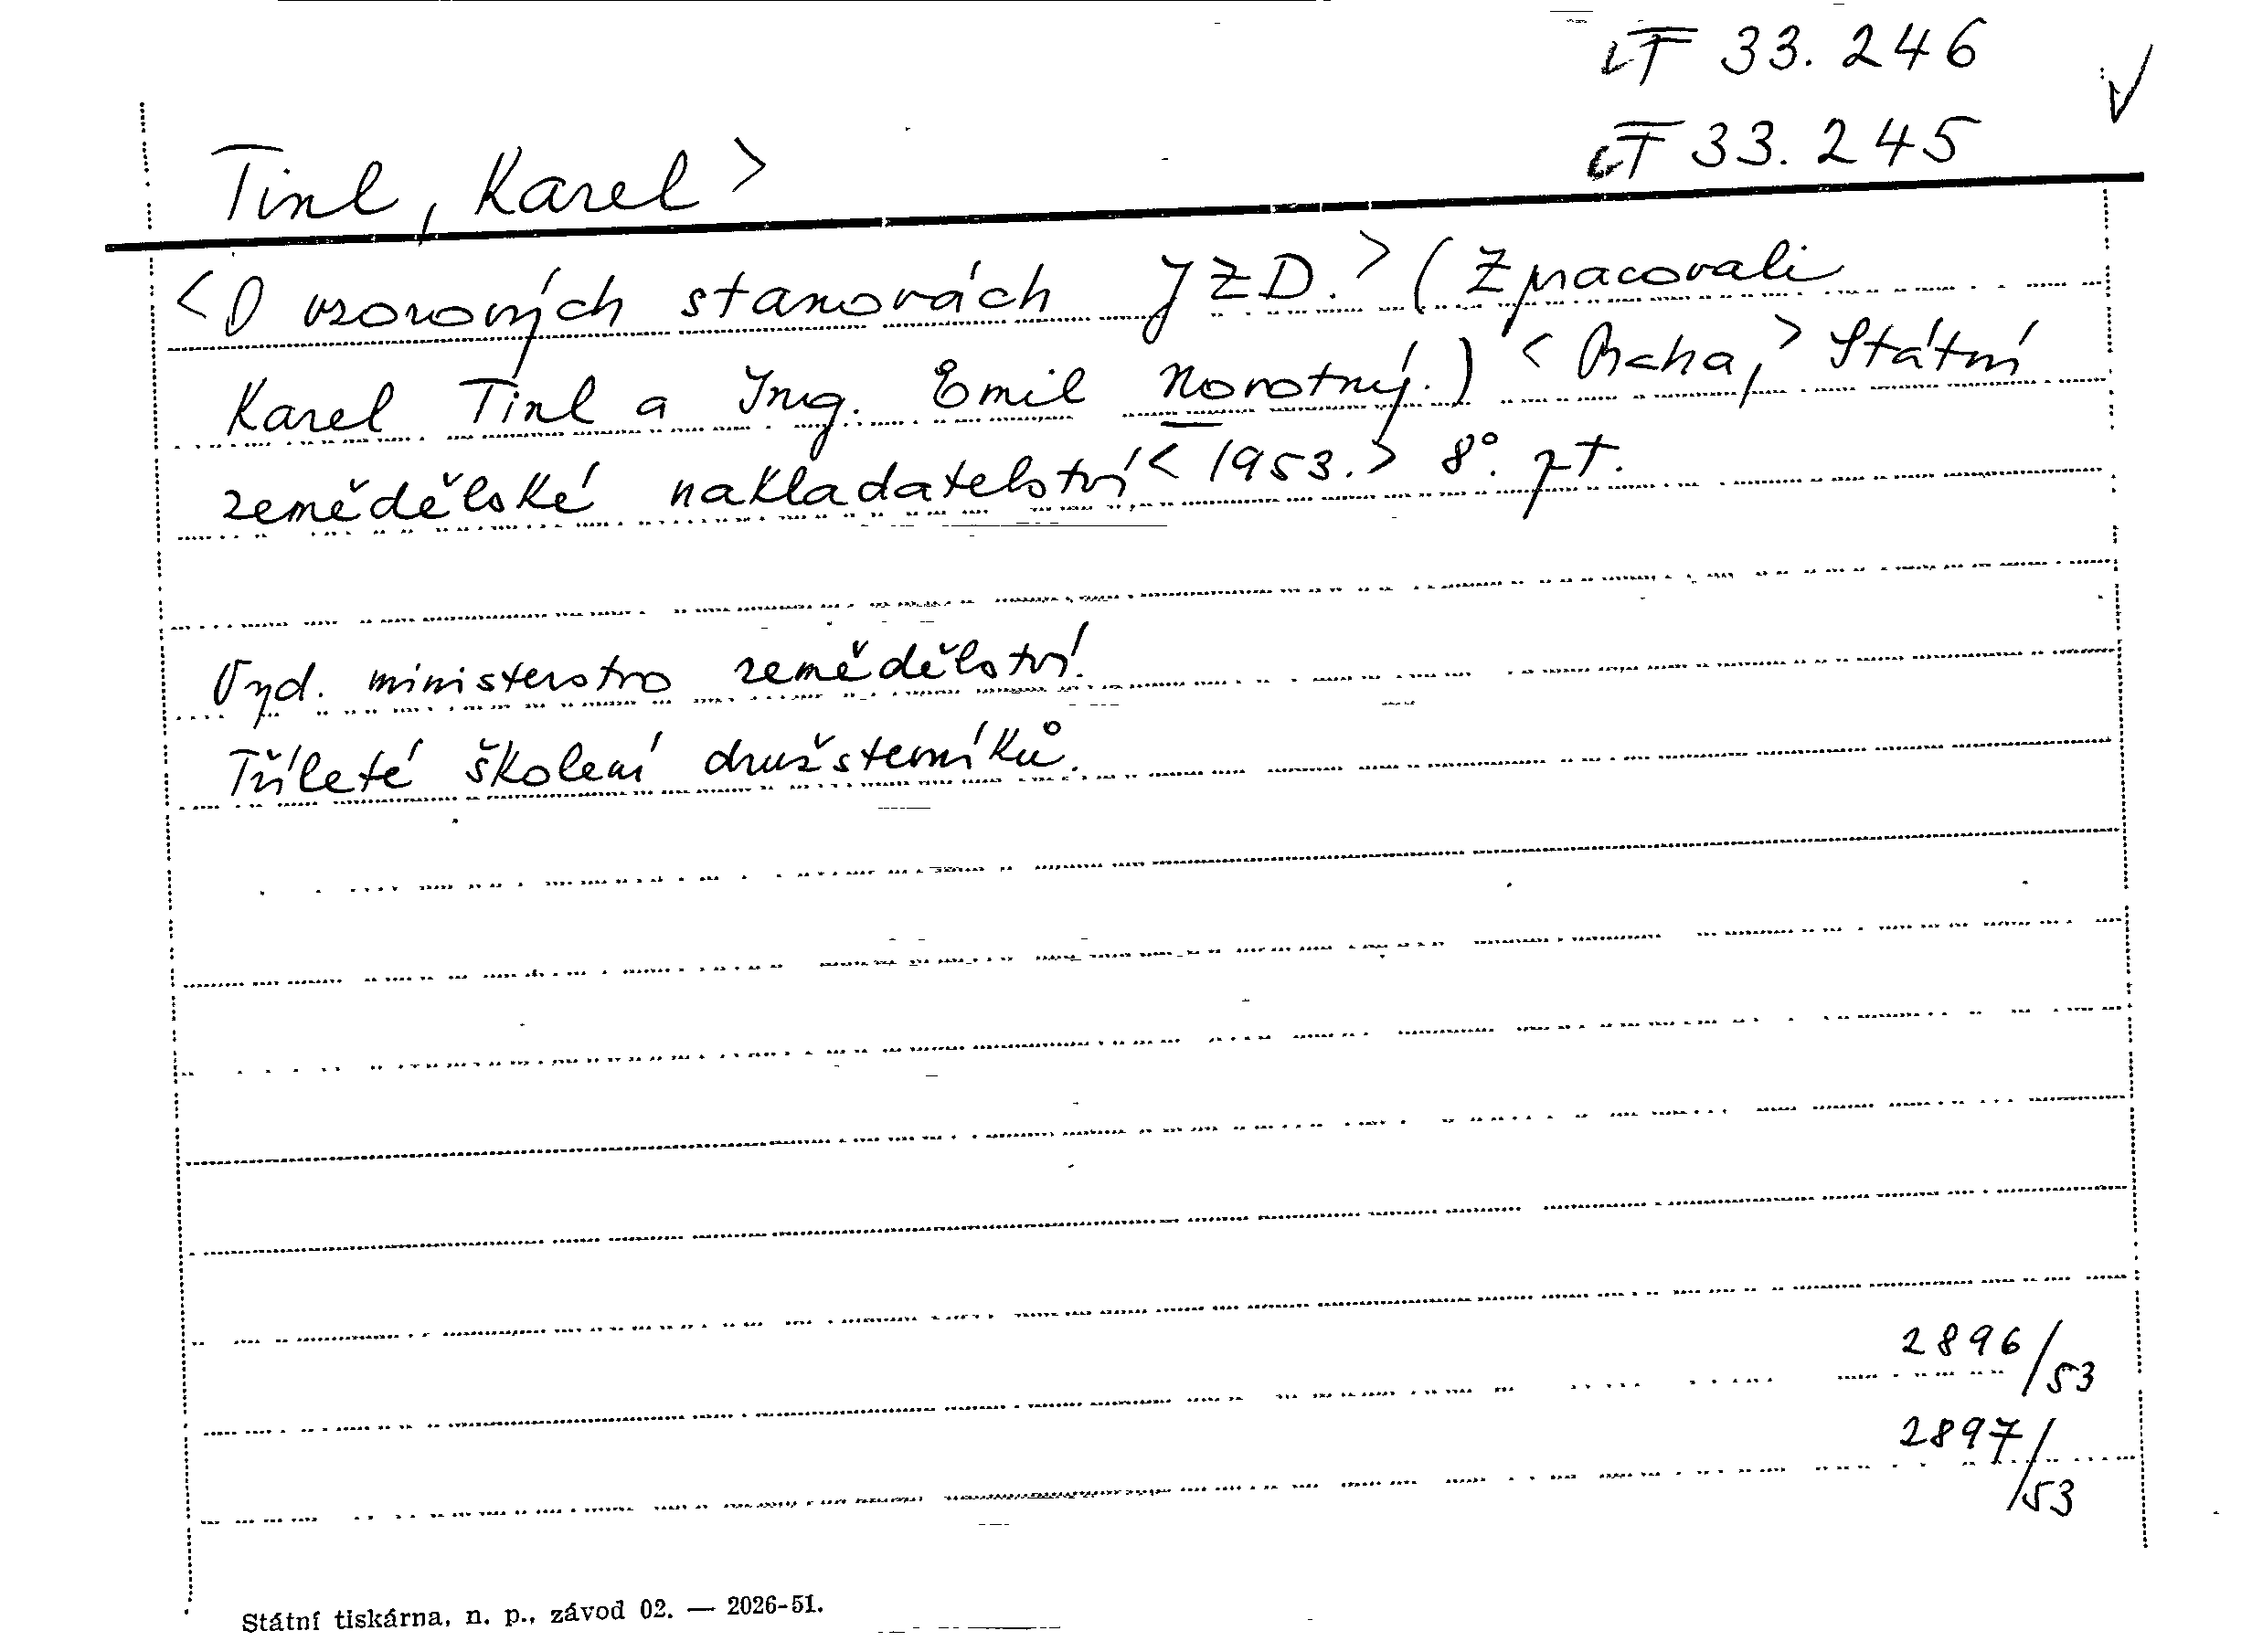 T 33.246
T 33.245
Tinl, Karel >
< O vzorových stanovách JZD. > ( Zpracovali
Karel Tinl a Ing. Emil Novotný.) < Praha, > Státní
zemědělské nakladatelství < 1953. > 8°. pt.
Vyd. ministerstvo zemědělství.
Tříleté školení družsterníků.
2896/53
2897/53
Státní tiskárna, n. p., závod 02. — 2026-51.